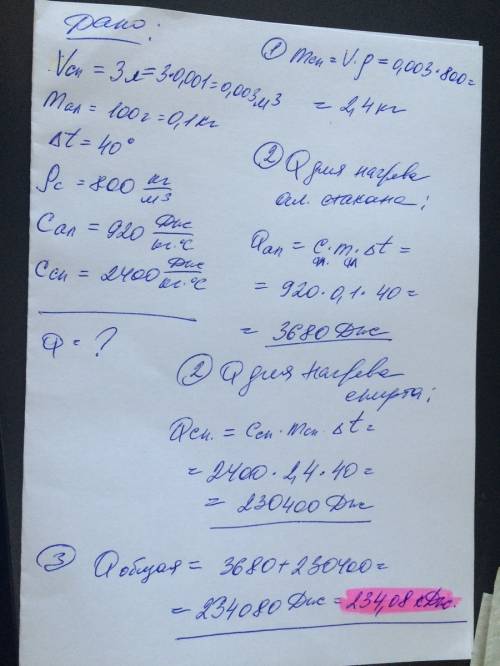 Дано:
Vсп = 3л = 3·0,001 = 0,003 м³
Mал = 100г = 0,1 кг
Δt = 40°
ρс = 800 кг/м³
Cал = 920 Дж/кг·°C
Cсп = 2400 Дж/кг·°C
Q = ?
① mсп = V·ρ = 0,003·800 =
= 2,4 кг
② Q для нагрева
ал. стакана:
Qал = Cал·mал·Δt =
= 920·0,1·40 =
= 3680 Дж
② Q для нагрева
спирта:
Qсп. = Cсп·mсп·Δt =
= 2400·2,4·40 =
= 230400 Дж
③ Qобщая = 3680 + 230400 =
= 234080 Дж = 234,08 кДж.